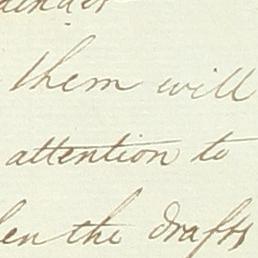 them will
attention to
the drafts